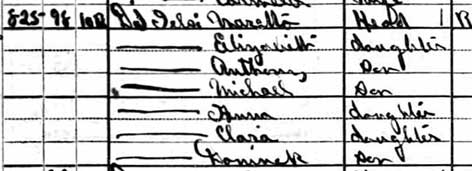 825 98 108 Del Maretta Head 1
Elizabeth daughter
Anthony Son
Michael Son
Anna daughter
Clara daughter
Dominick Son